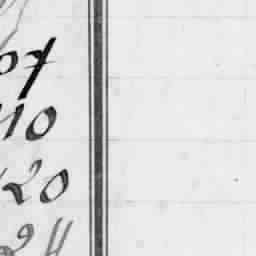 07
10
20
24